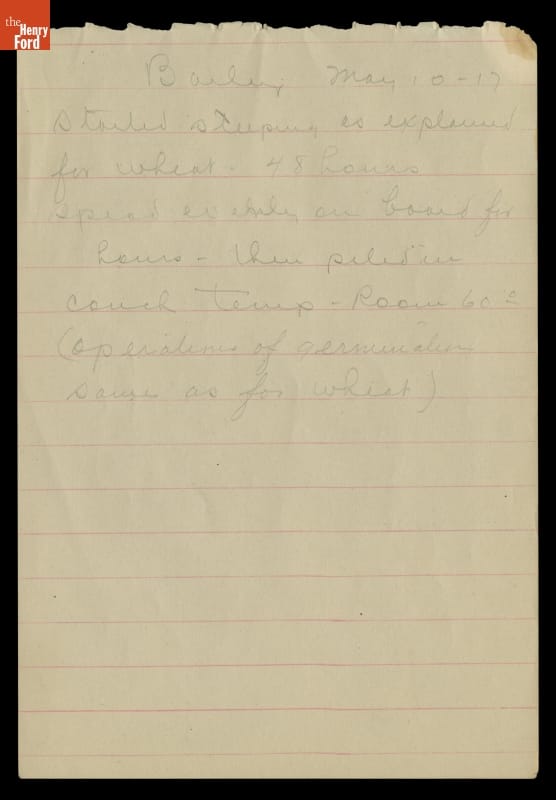 the
Henry
Ford
Barley May 10-17
Started steeping as explained
for wheat - 48 hours
spread evenly on board for
hours - then piled in
couch Temp - Room 60°
(operations of germination
same as for wheat)